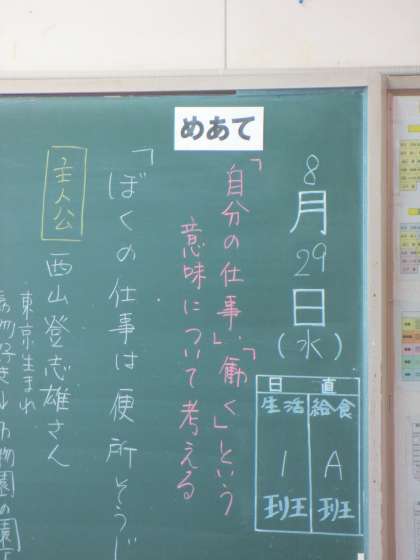 8月29日(水)
日直
生活 給食
1班 A班
めあて
「自分の仕事」「働く」という
意味について考える
「ぼくの仕事は便所そうじ
主人公
西山登志雄さん
東京生まれ
動物好き